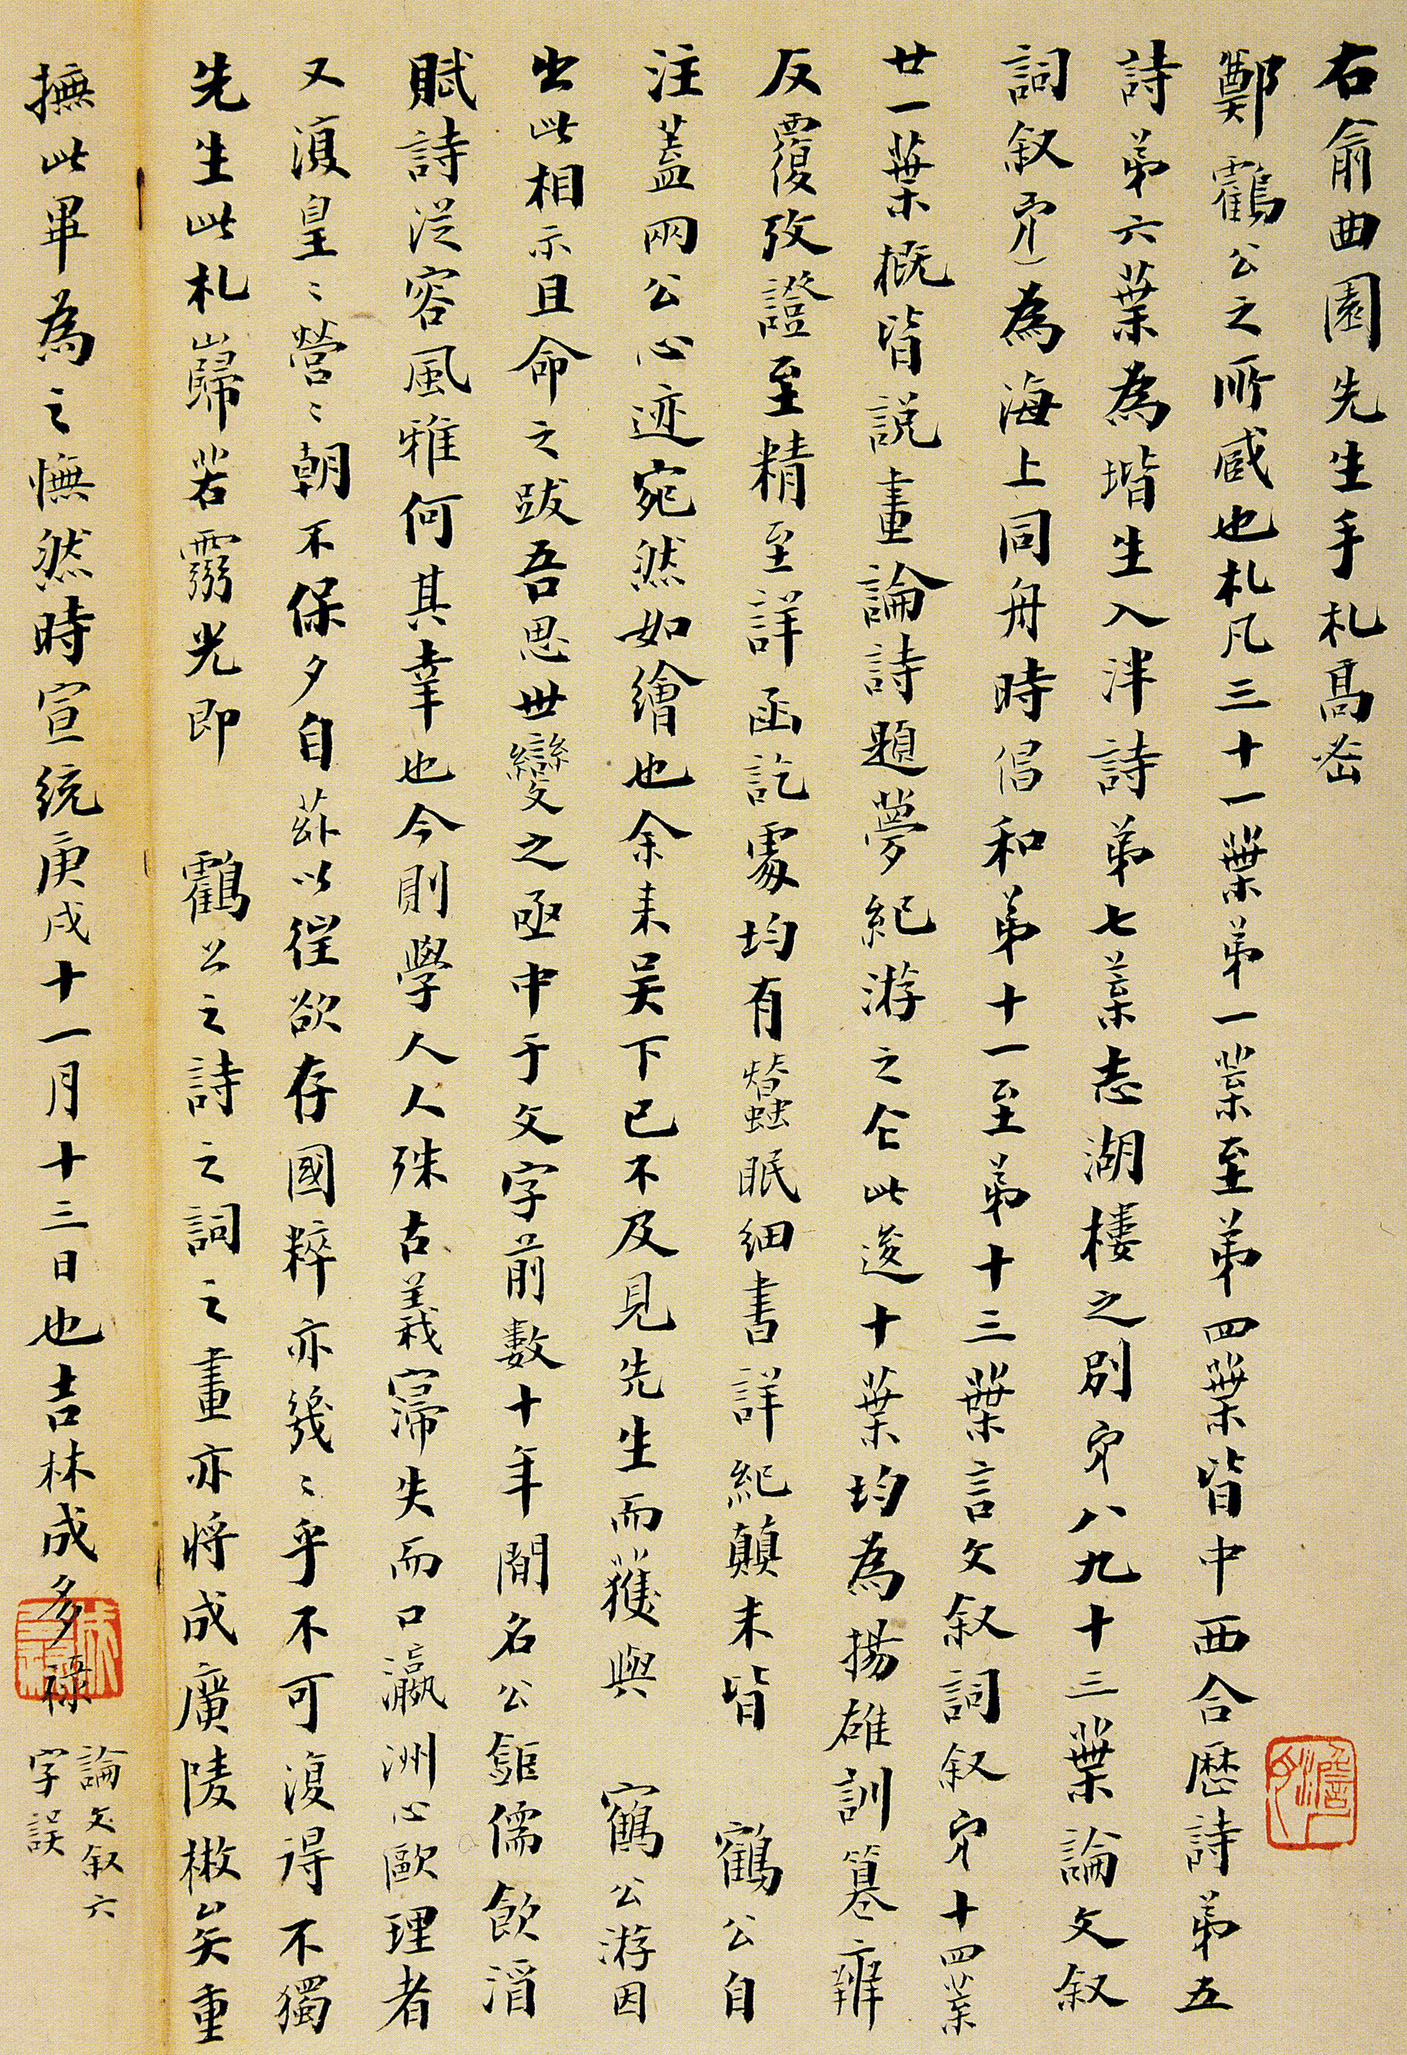 右俞曲園先生手札髙密
鄭鸖公之所藏也札凡三十一葉弟一葉至弟四葉皆中西合歷詩弟五
詩弟六葉為壻生入泮詩弟七葉志湖樓之別弟八九十三葉論文叙
詞叙弟為海上同舟時倡和弟十一至弟十三葉言文叙詞叙弟十四葉
廿一葉概皆說畫論詩題夢紀游之仝此後十葉均為揚雄訓纂辨
反覆攷證至精至詳函訖處均有蠶眠細書詳紀顛末皆 鶴公自
注蓋兩公心迹宛然如繪也余来吴下已不及見先生而獲與 鶴公游因
出此相示且命之跋吾思世變之亟中于文字前數十年間名公鉅儒飲酒
賦詩從容風雅何其幸也今則學人人殊古義寖失而口瀛洲心歐理者
又復皇〻營〻朝不保夕自茲以往欲存國粹亦幾〻乎不可復得不獨
先生此札巋若靈光即 鸖公之詩之詞之畫亦將成廣陵散矣重
撫此畢為之憮然時宣統庚戌十一月十三日也吉林成多祿
論文叙六
字誤